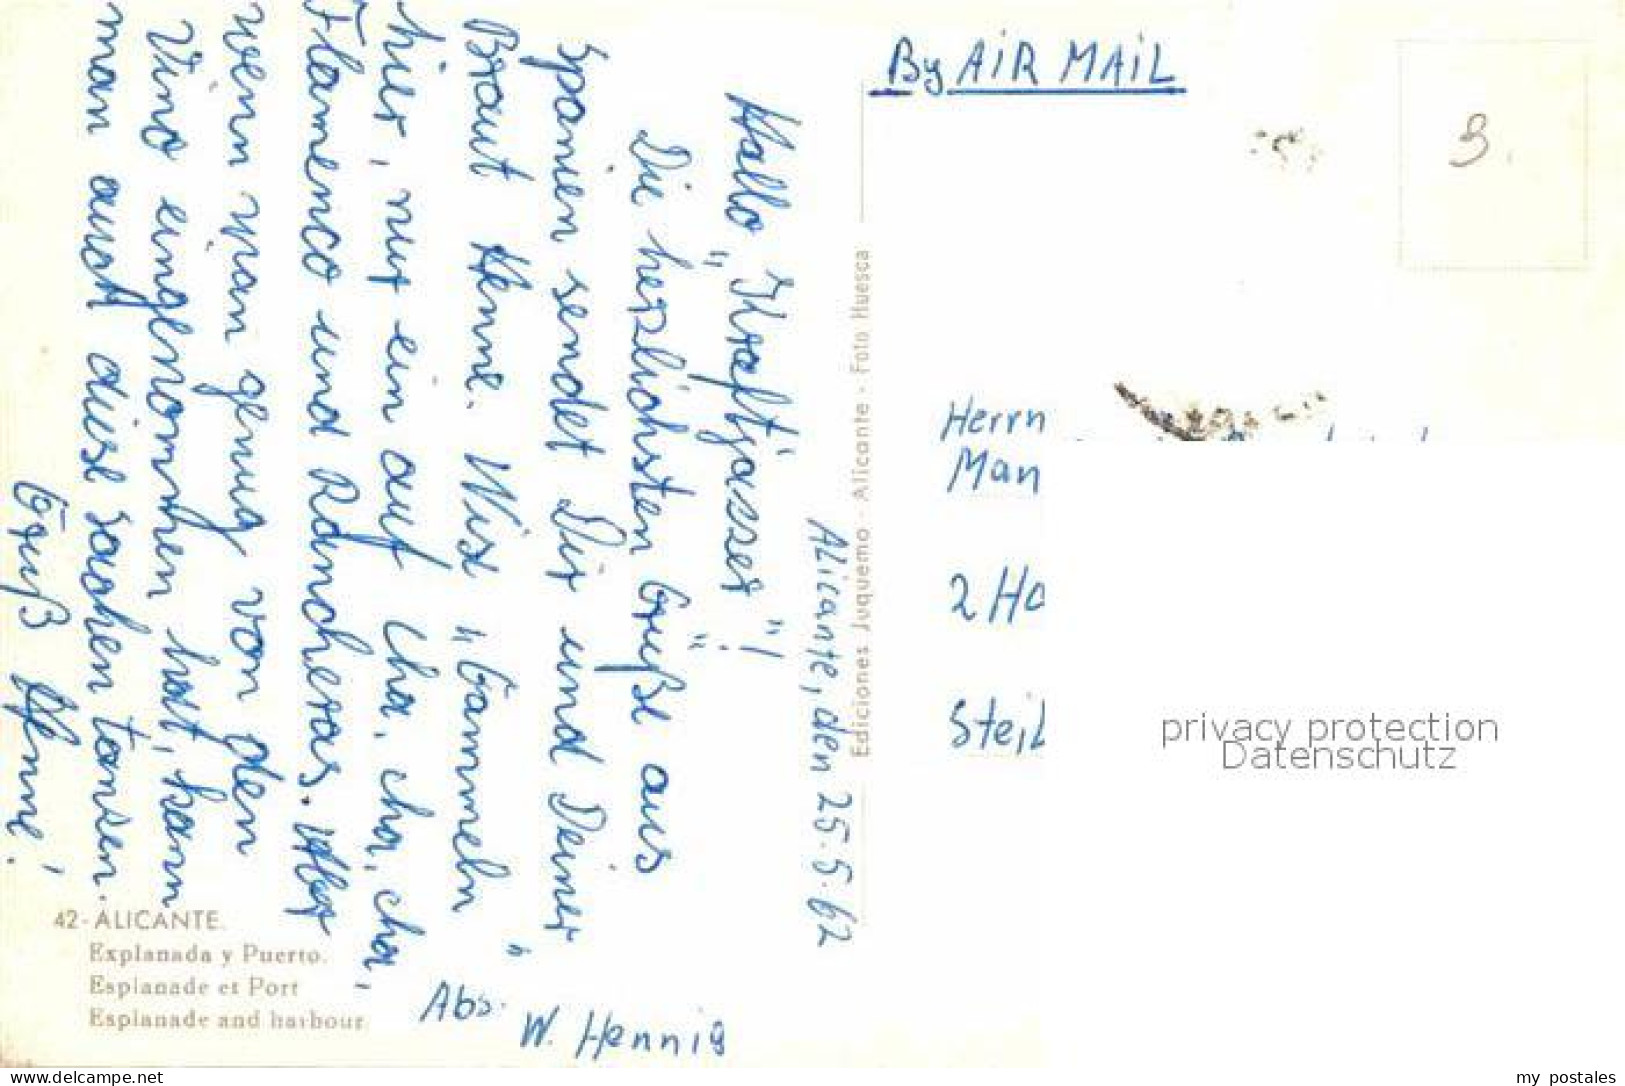 By AIR MAIL
9.
Alicante, den 25.5.62
Hallo „Kraftjasser"!
Die herzlichsten Grüße aus
Spanien sendet Dir und Deiner
Braut Henne. Nix „Gammeln"
hier, nur ein auf Cha, cha, cha,
Flamenco und Rancheras. Aber
wenn man genug von den
Vino eingenommen hat, kann
man auch diese sachen tansen.
Gruß Henne!
Abs. W. Hennig
Herrn
Man
2 Ha
Steil
Ediciones Juquemo - Alicante - Foto Huesca
42- ALICANTE.
Explanada y Puerto.
Esplanade et Port
Esplanade and harbour
privacy protection
Datenschutz
www.delcampe.net
my_postales